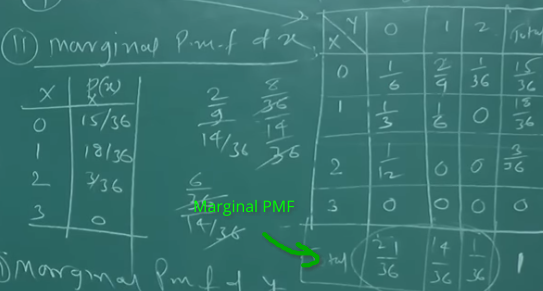 (ii) marginal P.m.f of x
X P(x)
X
0 15/36
1 18/36
2 3/36
3 0
2/9 8/36
14/36 14/36
6/36
14/36
Marginal PMF
X Y 0 1 2 Total
0 1/6 2/9 1/36 15/36
1 1/3 1/6 0 18/36
2 1/12 0 0 3/36
3 0 0 0 0
21/36 14/36 1/36 1
marginal Pmf of y